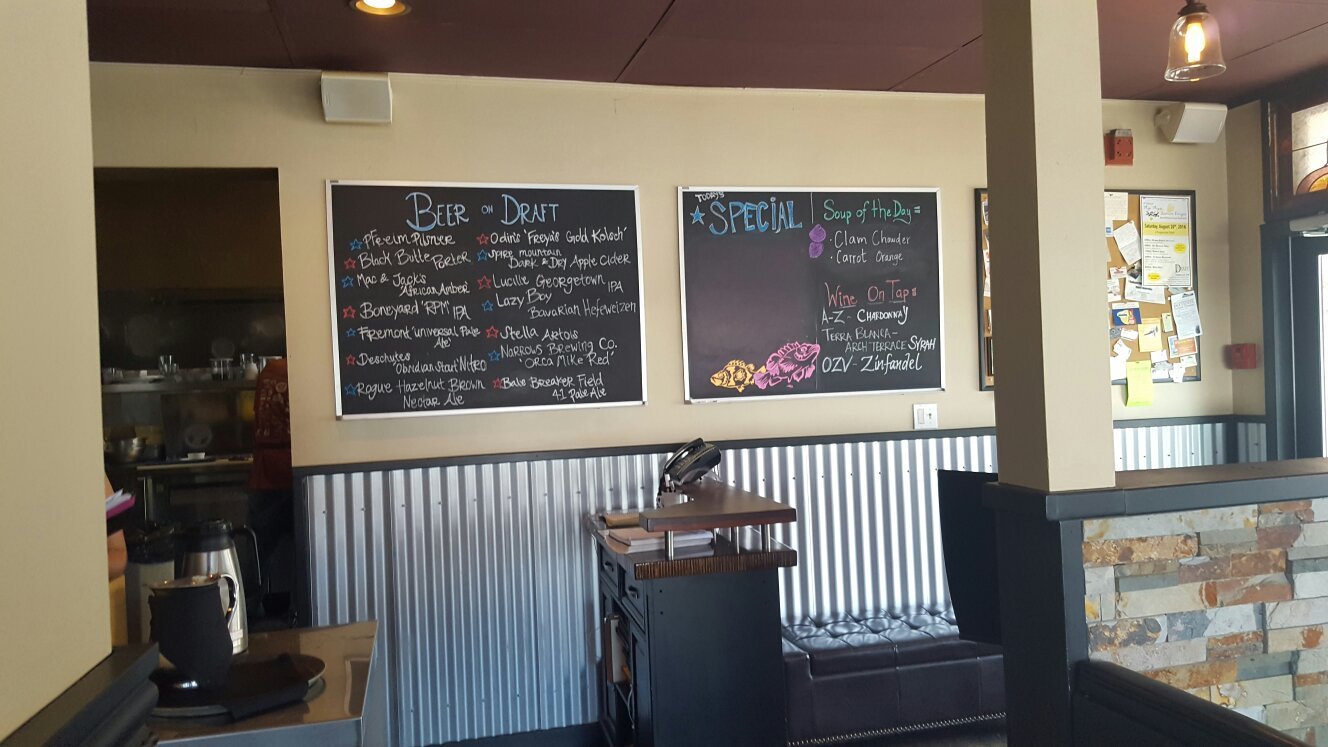 BEER ON DRAFT
Pfreim Pilsner
Black Butte Porter
Mac & Jack's
African Amber
Boneyard 'RPM' IPA
Fremont 'universal' Pale
Ale
Deschutes
Obsidian Stout Nitro
Rogue Hazelnut Brown
Nectar Ale
Odin's 'Freya's Gold Kolsch'
Spire mountain
Dark & Dry Apple Cider
Lucille Georgetown IPA
Lazy Boy
Bavarian Hefeweizen
Stella Artois
Narrows Brewing Co.
'Orca Mike Red'
Bale Breaker Field
41 Pale Ale
TODAY'S
SPECIAL
Soup of the Day =
· Clam Chowder
· Carrot Orange
Wine On Tap =
A-Z - CHARDONNAY
TERRA BLANCA -
ARCH TERRACE SYRAH
OZV - Zinfandel